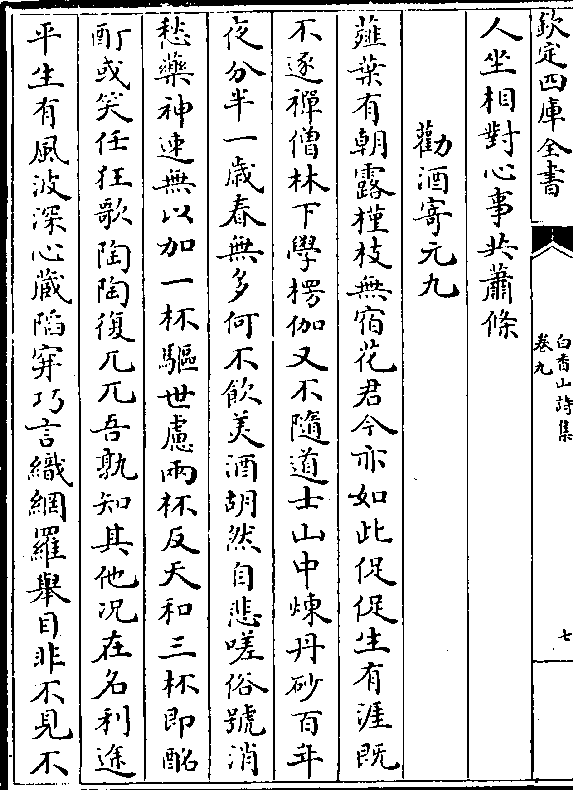 欽定四庫全書
白香山詩集
卷九
七
人坐相對心事共蕭條
勸酒寄元九
薤葉有朝露槿枝無宿花君今亦如此促促生有涯既
不逐禪僧林下學楞伽又不隨道士山中煉丹砂百年
夜分半一歳春無多何不飲美酒胡然自悲嗟俗號消
愁藥神速無以加一杯驅世慮兩杯反天和三杯即酩
酊或笑任狂歌陶陶復兀兀吾孰知其他况在名利途
平生有風波深心藏陷穽巧言織網羅舉目非不見不